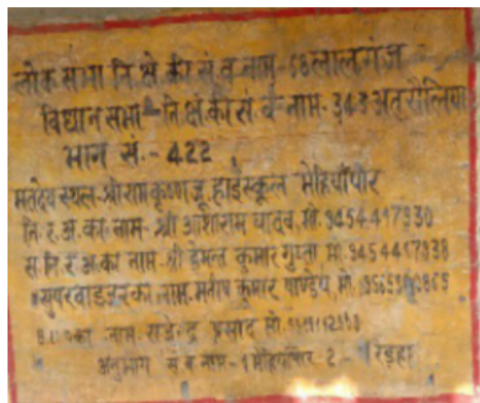 लोक सभा नि.क्षे.की सं.व नाम-68 लालगंज
विधान सभा-नि.क्षे.की सं.व-नाम-343 अतरौलिया
भाग सं.-422
मतदेय स्थल-श्री राम कृष्ण जू.हाईस्कूल
नि.र.अ.का-नाम-श्री आशाराम यादव.मो.9454417930
स.नि.र.अ.का नाम-श्री हेमन्त कुमार गुप्ता मो.9454417938
सुपरवाइजर का नाम.मनीष कुमार पाण्डेय.मो.
का नाम-राजेन्द्र प्रसाद मो.
अनुभाग सं व नाम-1 2-रेड़हा